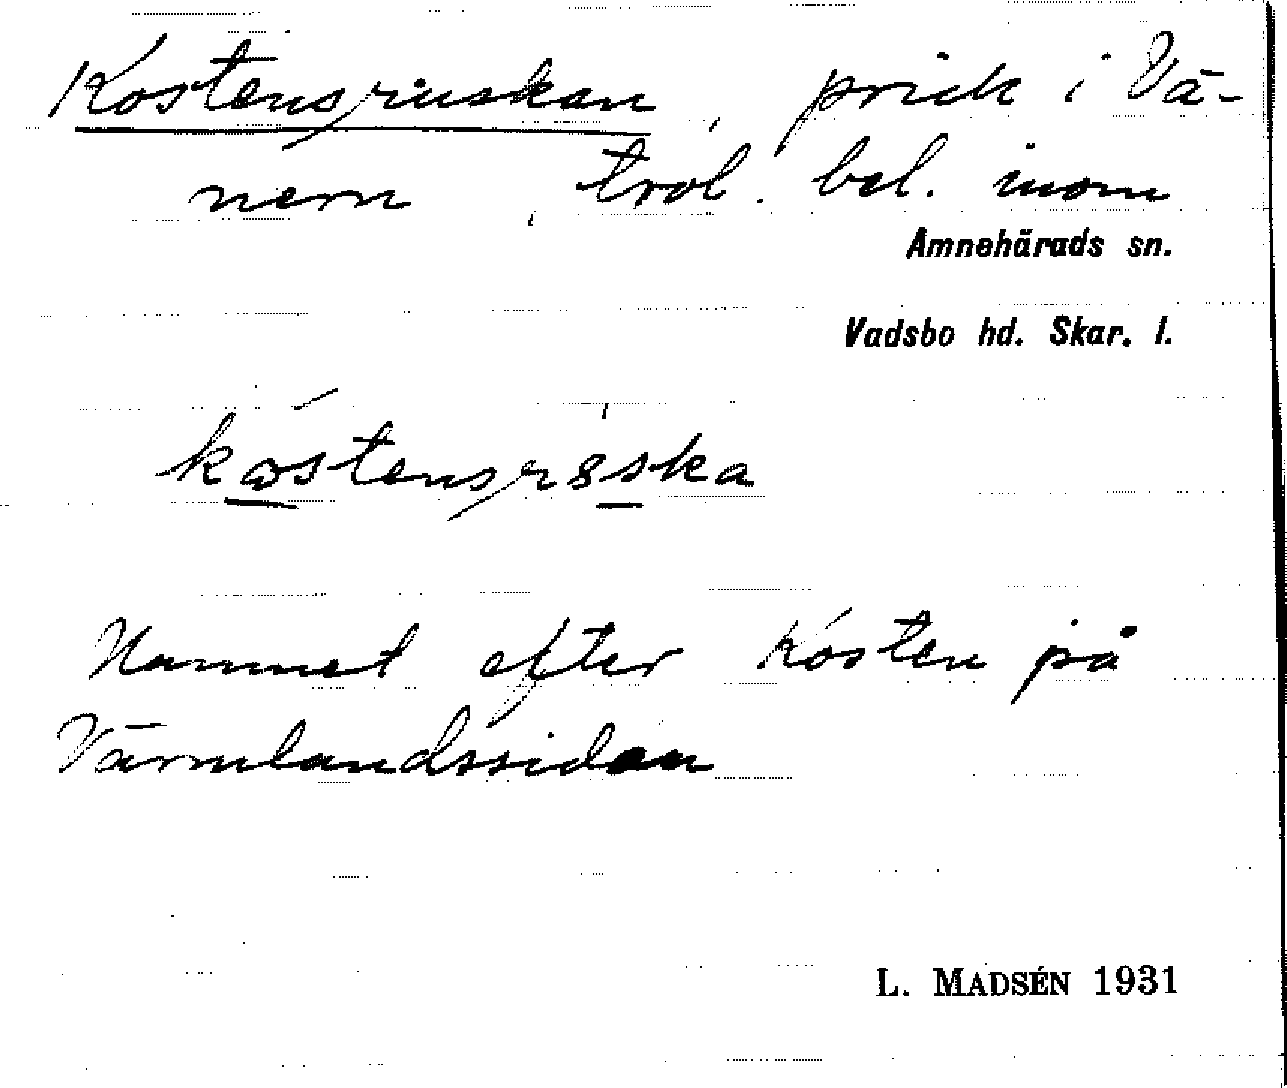 Kostensruskan, prick i Vä-
nern, trol. bel. inom
Amnehärads sn.
Vadsbo hd. Skar. l.
Namnet efter Kosten på
Värmlandssidan
L. MADSÉN 1931